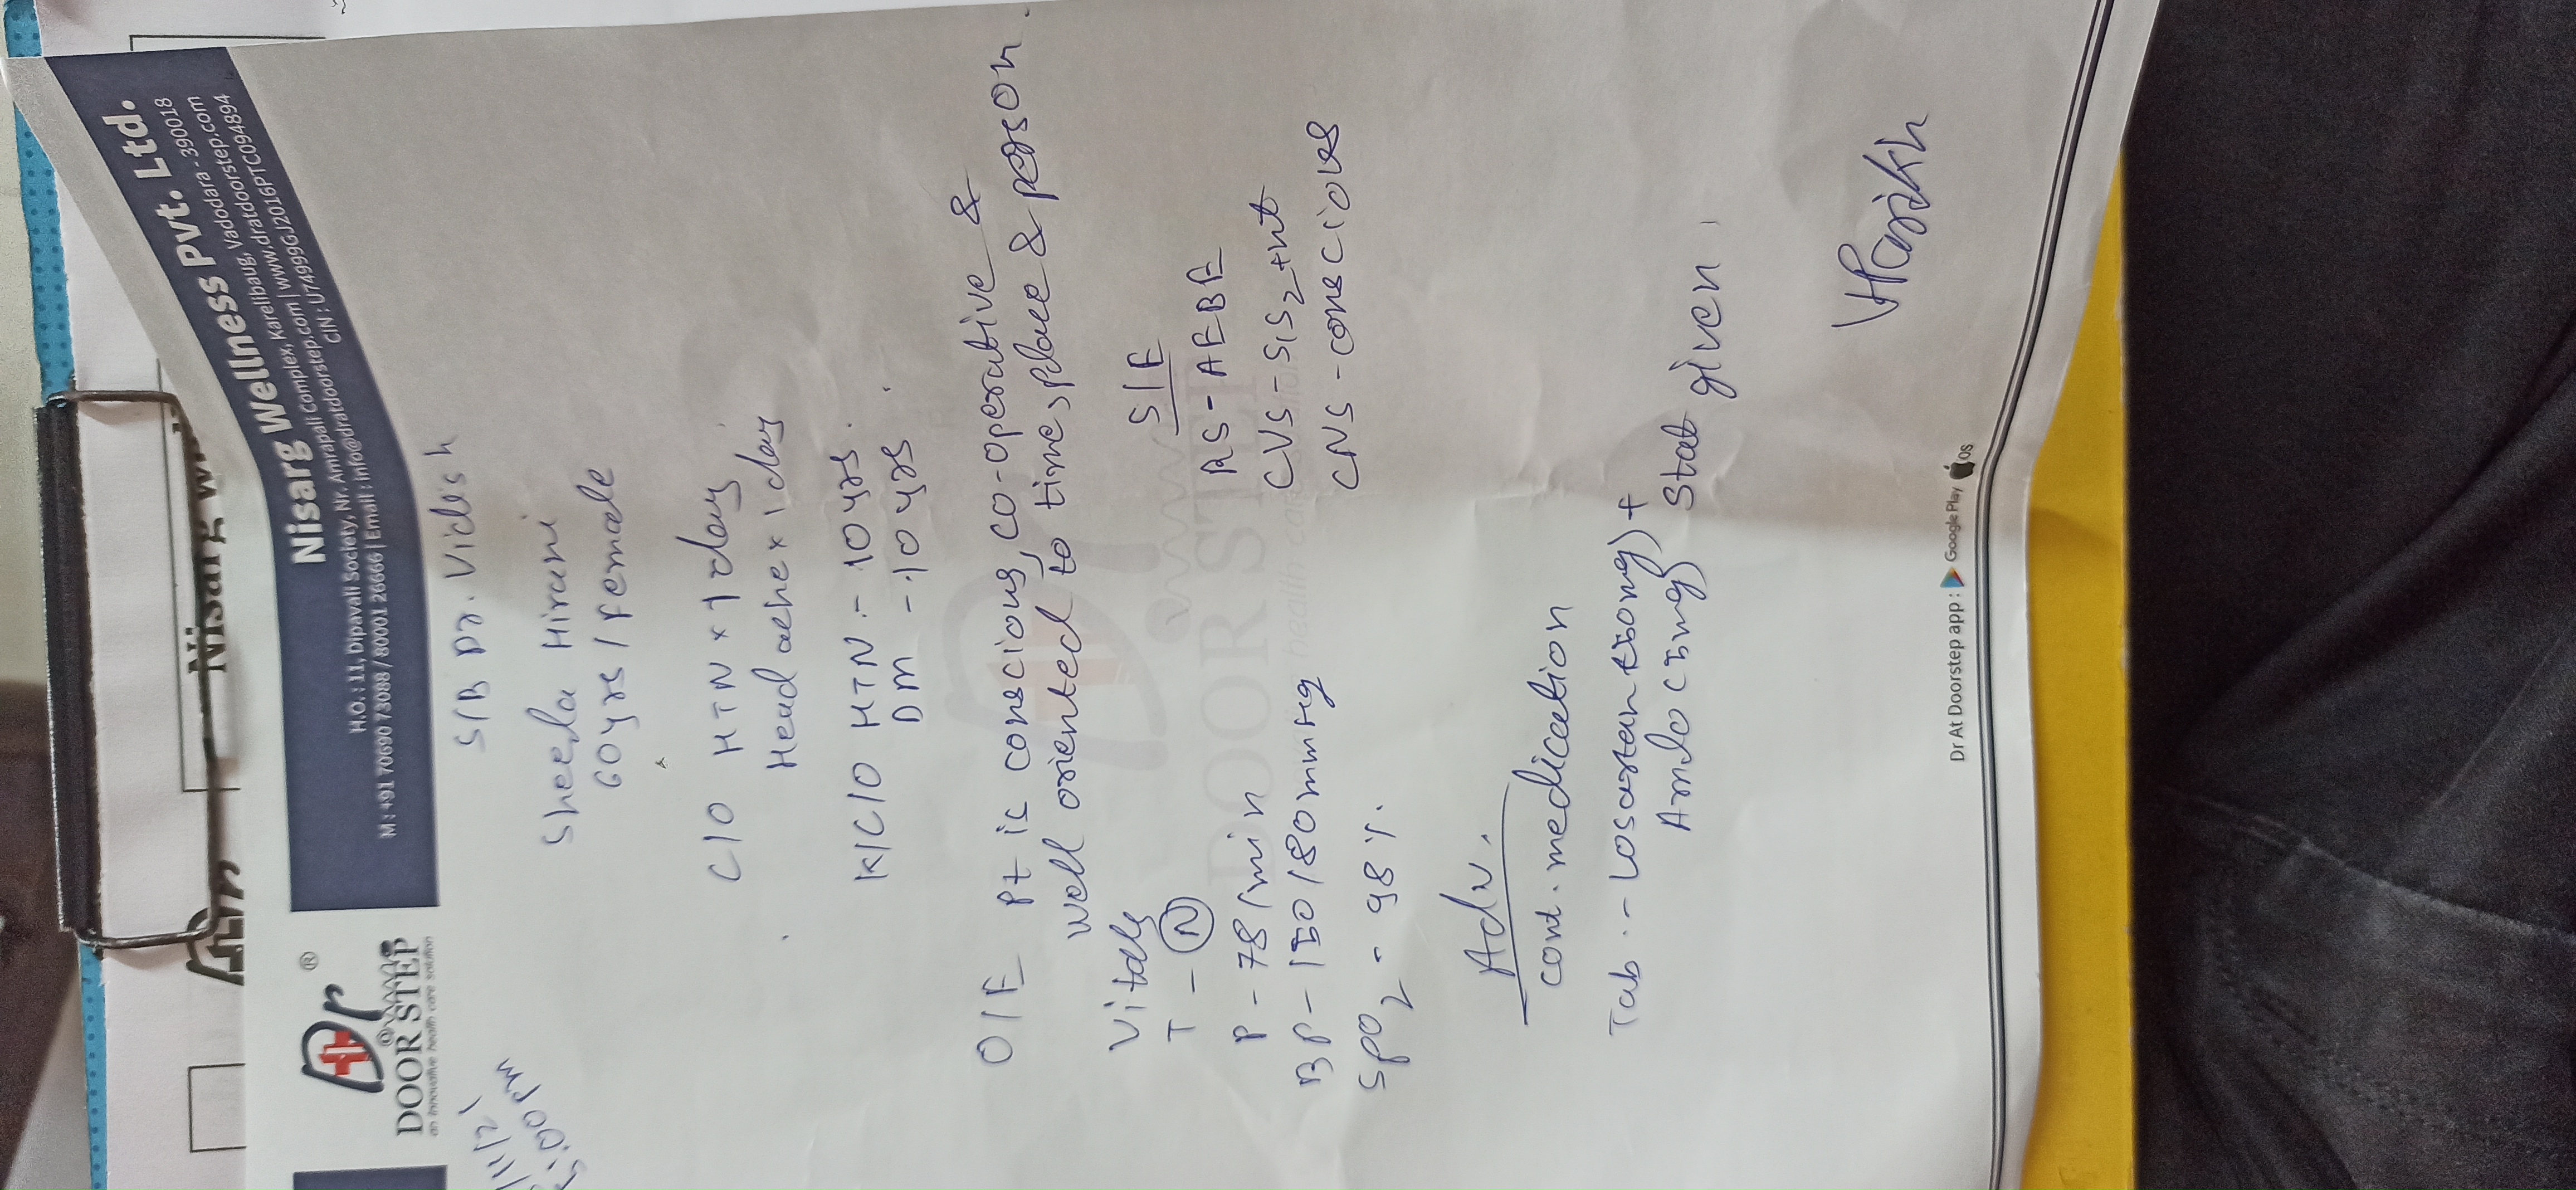 Nisarg
Nisarg Wellness Pvt. Ltd.
H.O. : 11, Dipavali Society, Nr. Amrapali Complex, Karelibaug, Vadodara - 390018
M : +91 70690 73088 / 80001 26666 | Email : info@dratdoorstep.com | www.dratdoorstep.com
CIN : U74999GJ2016PTC094894
Dr ®
@
DOOR STEP
an innovative health care solution
/11/21
5:00 pm
S/B Dr. Videsh
Sheela Hirani
60 yrs / Female
C/O HTN x 1 day
Headache x 1 day
K/C/O HTN - 10 yrs.
DM - 10 yrs
O/E Pt is conscious, co-operative &
well oriented to time, place & person.
Vitals
T - N
P - 78/min
BP - 150/80 mmHg
SpO2 - 98%.
S/E
RS - AEBE
CVS - S1S2 +nt
CNS - conscious
Adv.
cont. medication
Tab - Losartan (50mg) +
Amlo (5mg) stat given.
VParikh
Dr At Doorstep app : Google Play iOS